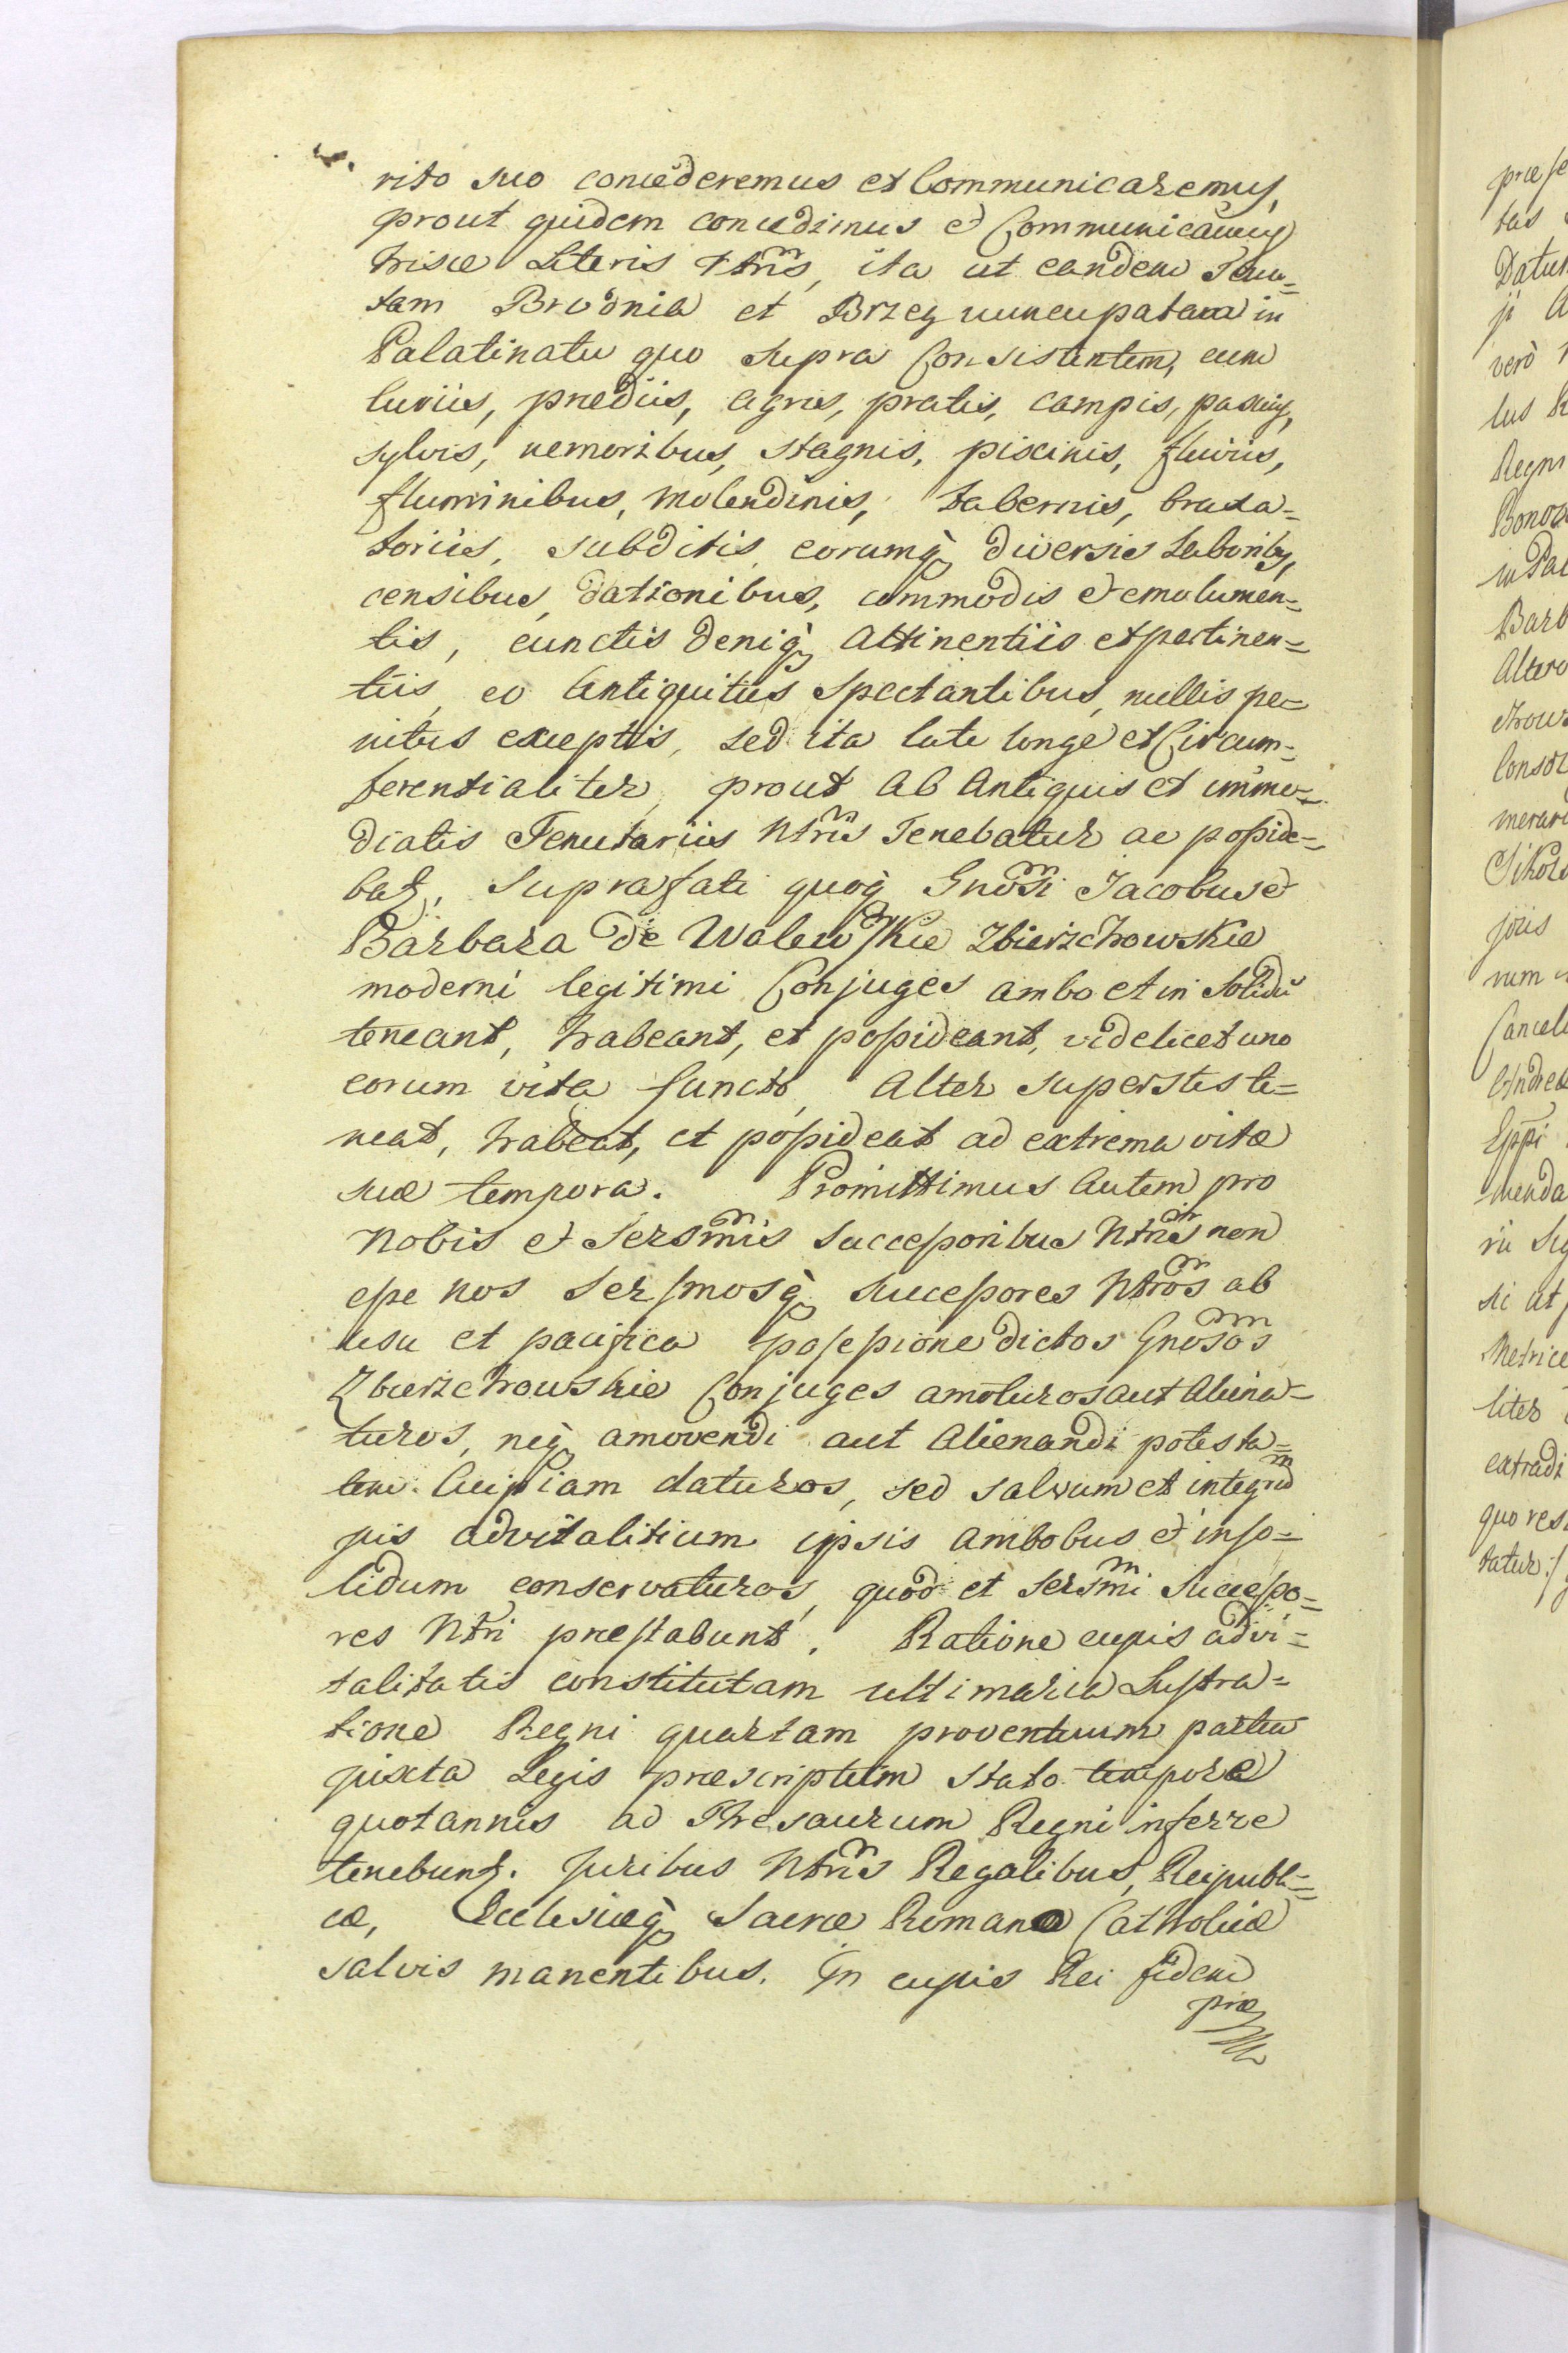 rito suo concederemus et Communicaremus,
prout quidem concedimus et Communicamus
hisce Literis Ntris, ita ut eandem Tenu=
tam Brodnia et Brzeg nuncupatam in
Palatinatu quo supra Consistentem, cum
curiis, prædiis, agris, pratis, campis, pascuis,
sylvis, nemoribus, stagnis, piscinis, fluviis,
fluminibus, molendinis, tabernis, braxa=
toriis, subditis, eorumq3 diversis Laboribus,
censibus, dationibus, commodis et emolumen=
tis, cunctis deniq3 attinentiis et pertinen=
tiis, eo antiquitus spectantibus, nullis pe=
nitus exceptis, sed ita late longe et Circum=
ferentialiter, prout ab antiquis et imme=
diatis Tenutariis Ntris Tenebatur ac posside=
batr, suprafati quoq3 Gnosi Jacobus et
Barbara de Walewskie Zbierzchowskie
moderni legitimi Conjuges ambo et in solidū
teneant, habeant, et possideant, videlicet uno
eorum vita functo, alter superstes te=
neat, habeat, et possideat ad extrema vitæ
suæ tempora. Promittimus autem pro
Nobis et Sersmis Successoribus Ntris non
esse nos Sersmosq3 successores Ntros ab
usu et pacifica possessione dictos Gnosos
Zbierzchowskie Conjuges amoturos aut aliena=
turos, neq3 amovendi aut alienandi potesta=
tem. Cuipiam daturos, sed salvum et integrum
jus advitalitium ipsis ambobus et in so=
lidum conservaturos, quod et Sersmi Successo=
res Ntri præstabunt. Ratione cujus advi=
talitatis constitutam ultimaria Lustra=
tione Regni quartam proventuum partem
juxta Legis præscriptum stato tempore
quotannis ad Thesaurum Regni inferre
tenebuntr. Juribus Ntris Regalibus, Reipubli=
cæ, Ecclesiæq3 Sacræ Romanæ Catholicæ
salvis manentibus. In cujus Rei fidem
præ